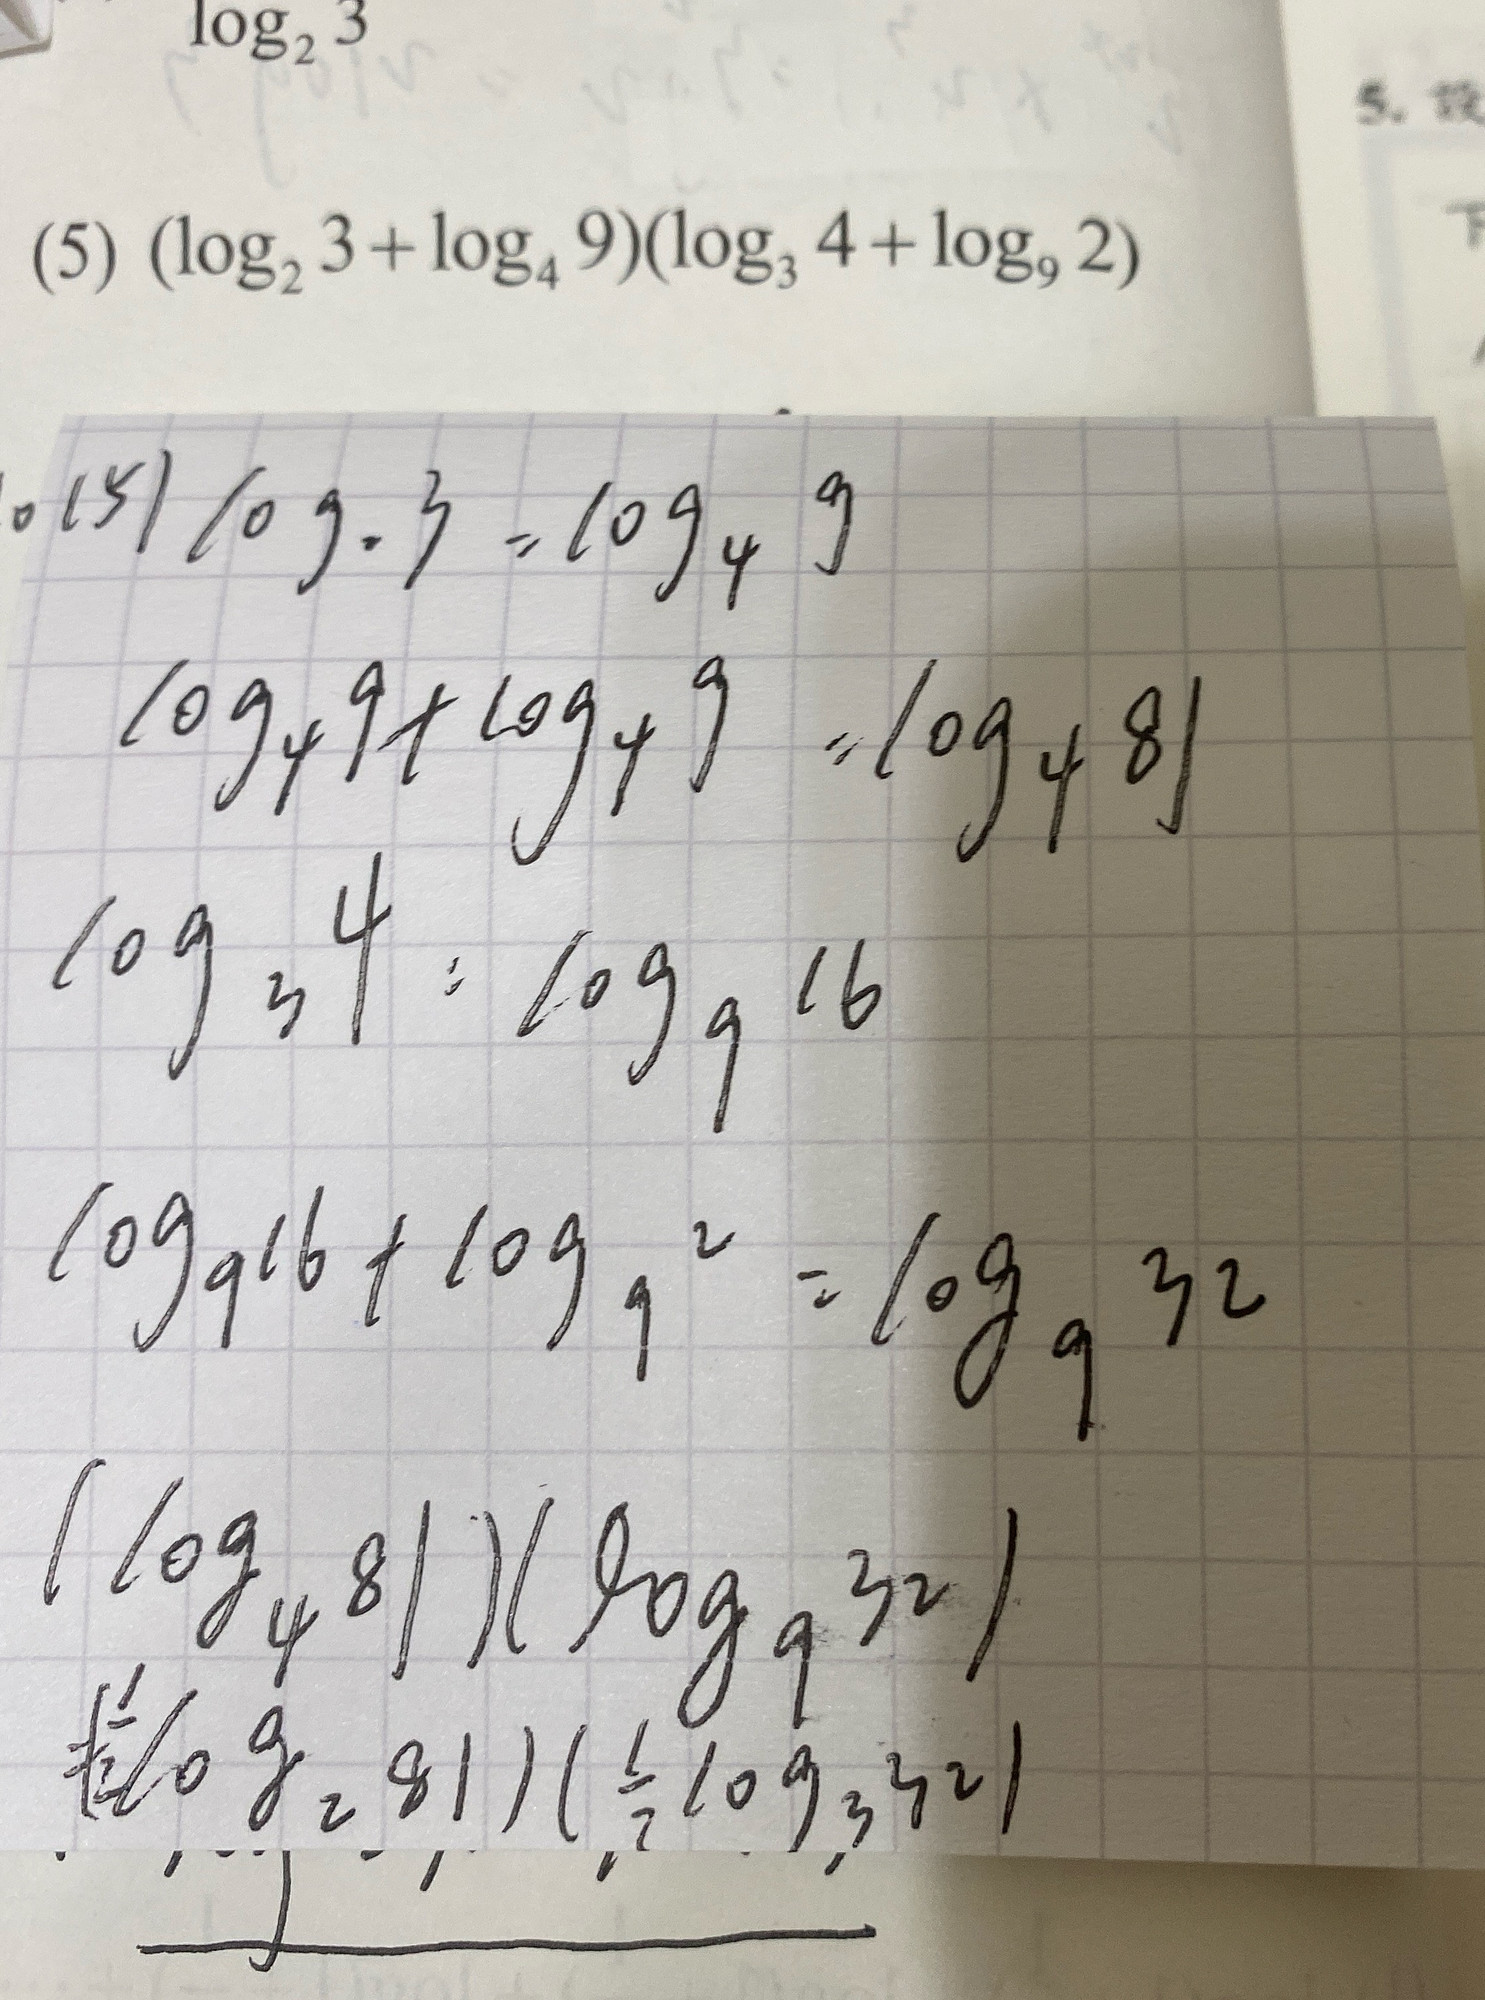 log₂ 3
5. 設
(5) (log₂ 3 + log₄ 9)(log₃ 4 + log₉ 2)
下
(5) log₂ 3 = log₄ 9
log₄ 9 + log₄ 9 = log₄ 81
log₃ 4 = log₉ 16
log₉ 16 + log₉ 2 = log₉ 32
(log₄ 81)(log₉ 32)
(½ log₂ 81)(½ log₃ 32)